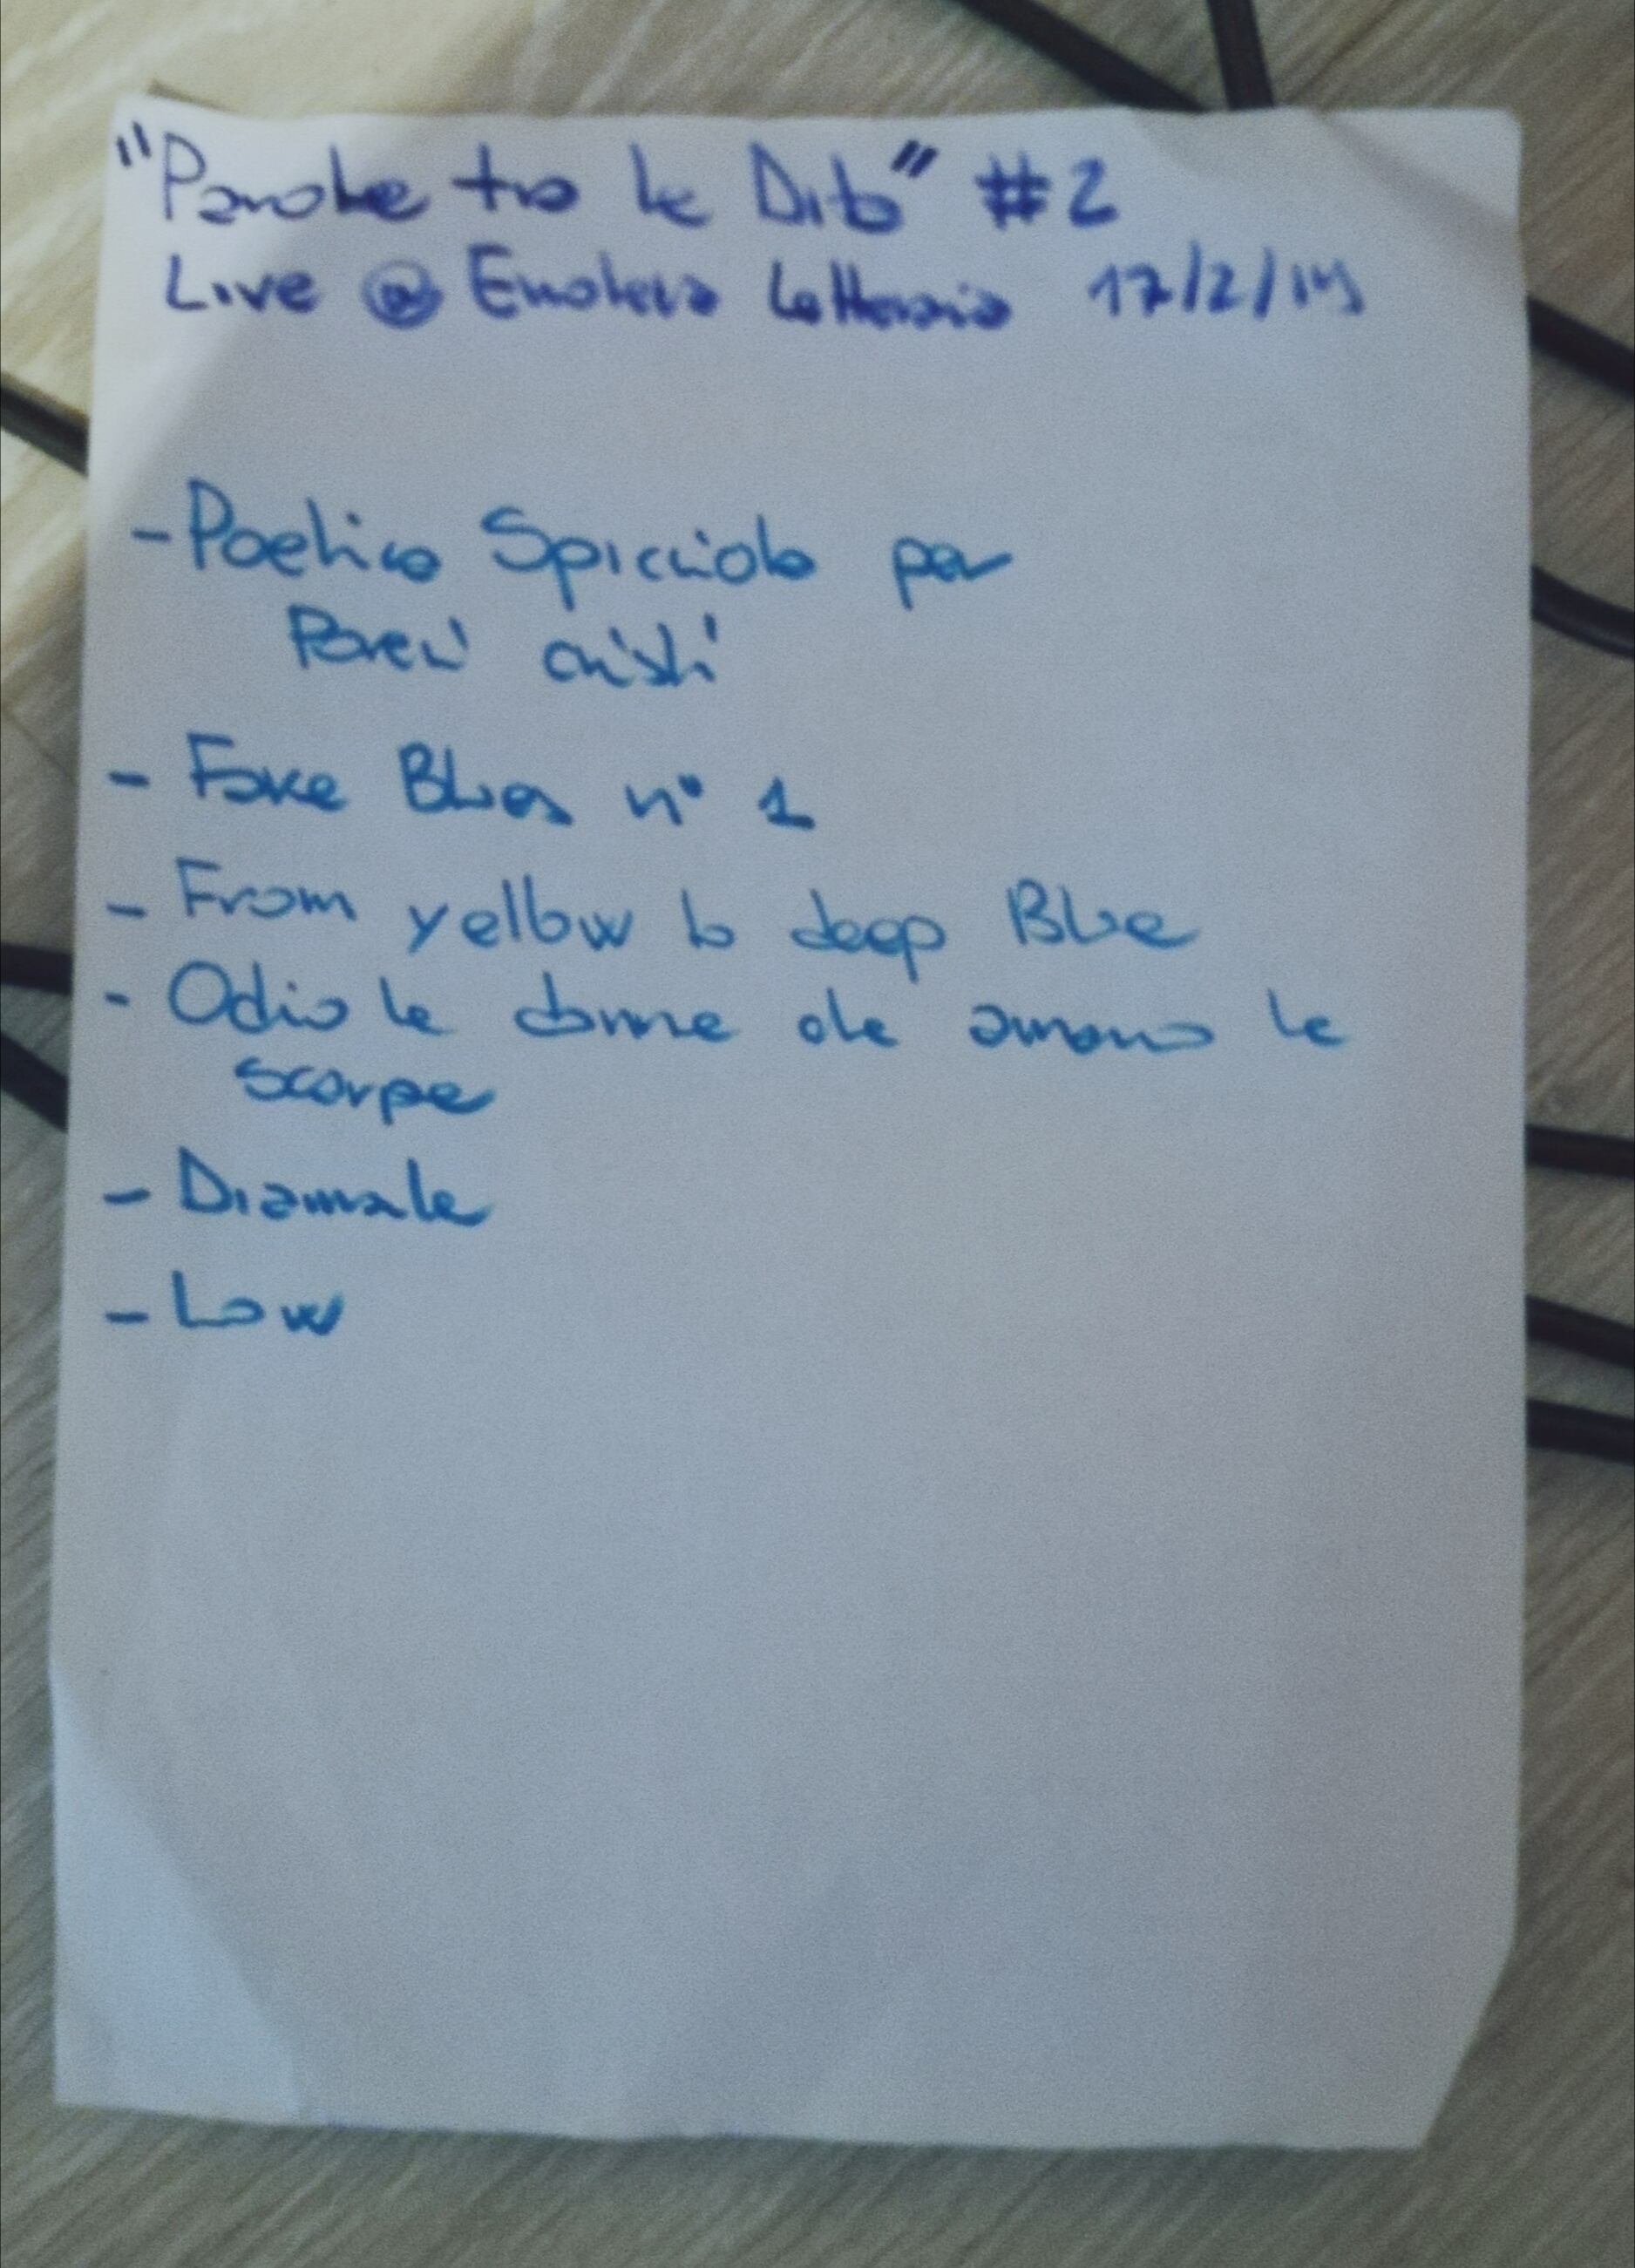 "Parole tra le Dita" #2
Live @ Enoteca Letteraria 17/2/14
- Poetica Spicciola per
Poveri cristi
- Fake Blues n° 1
- From yellow to deep Blue
- Odio le donne che amano le
scarpe
- Diamale
- Low